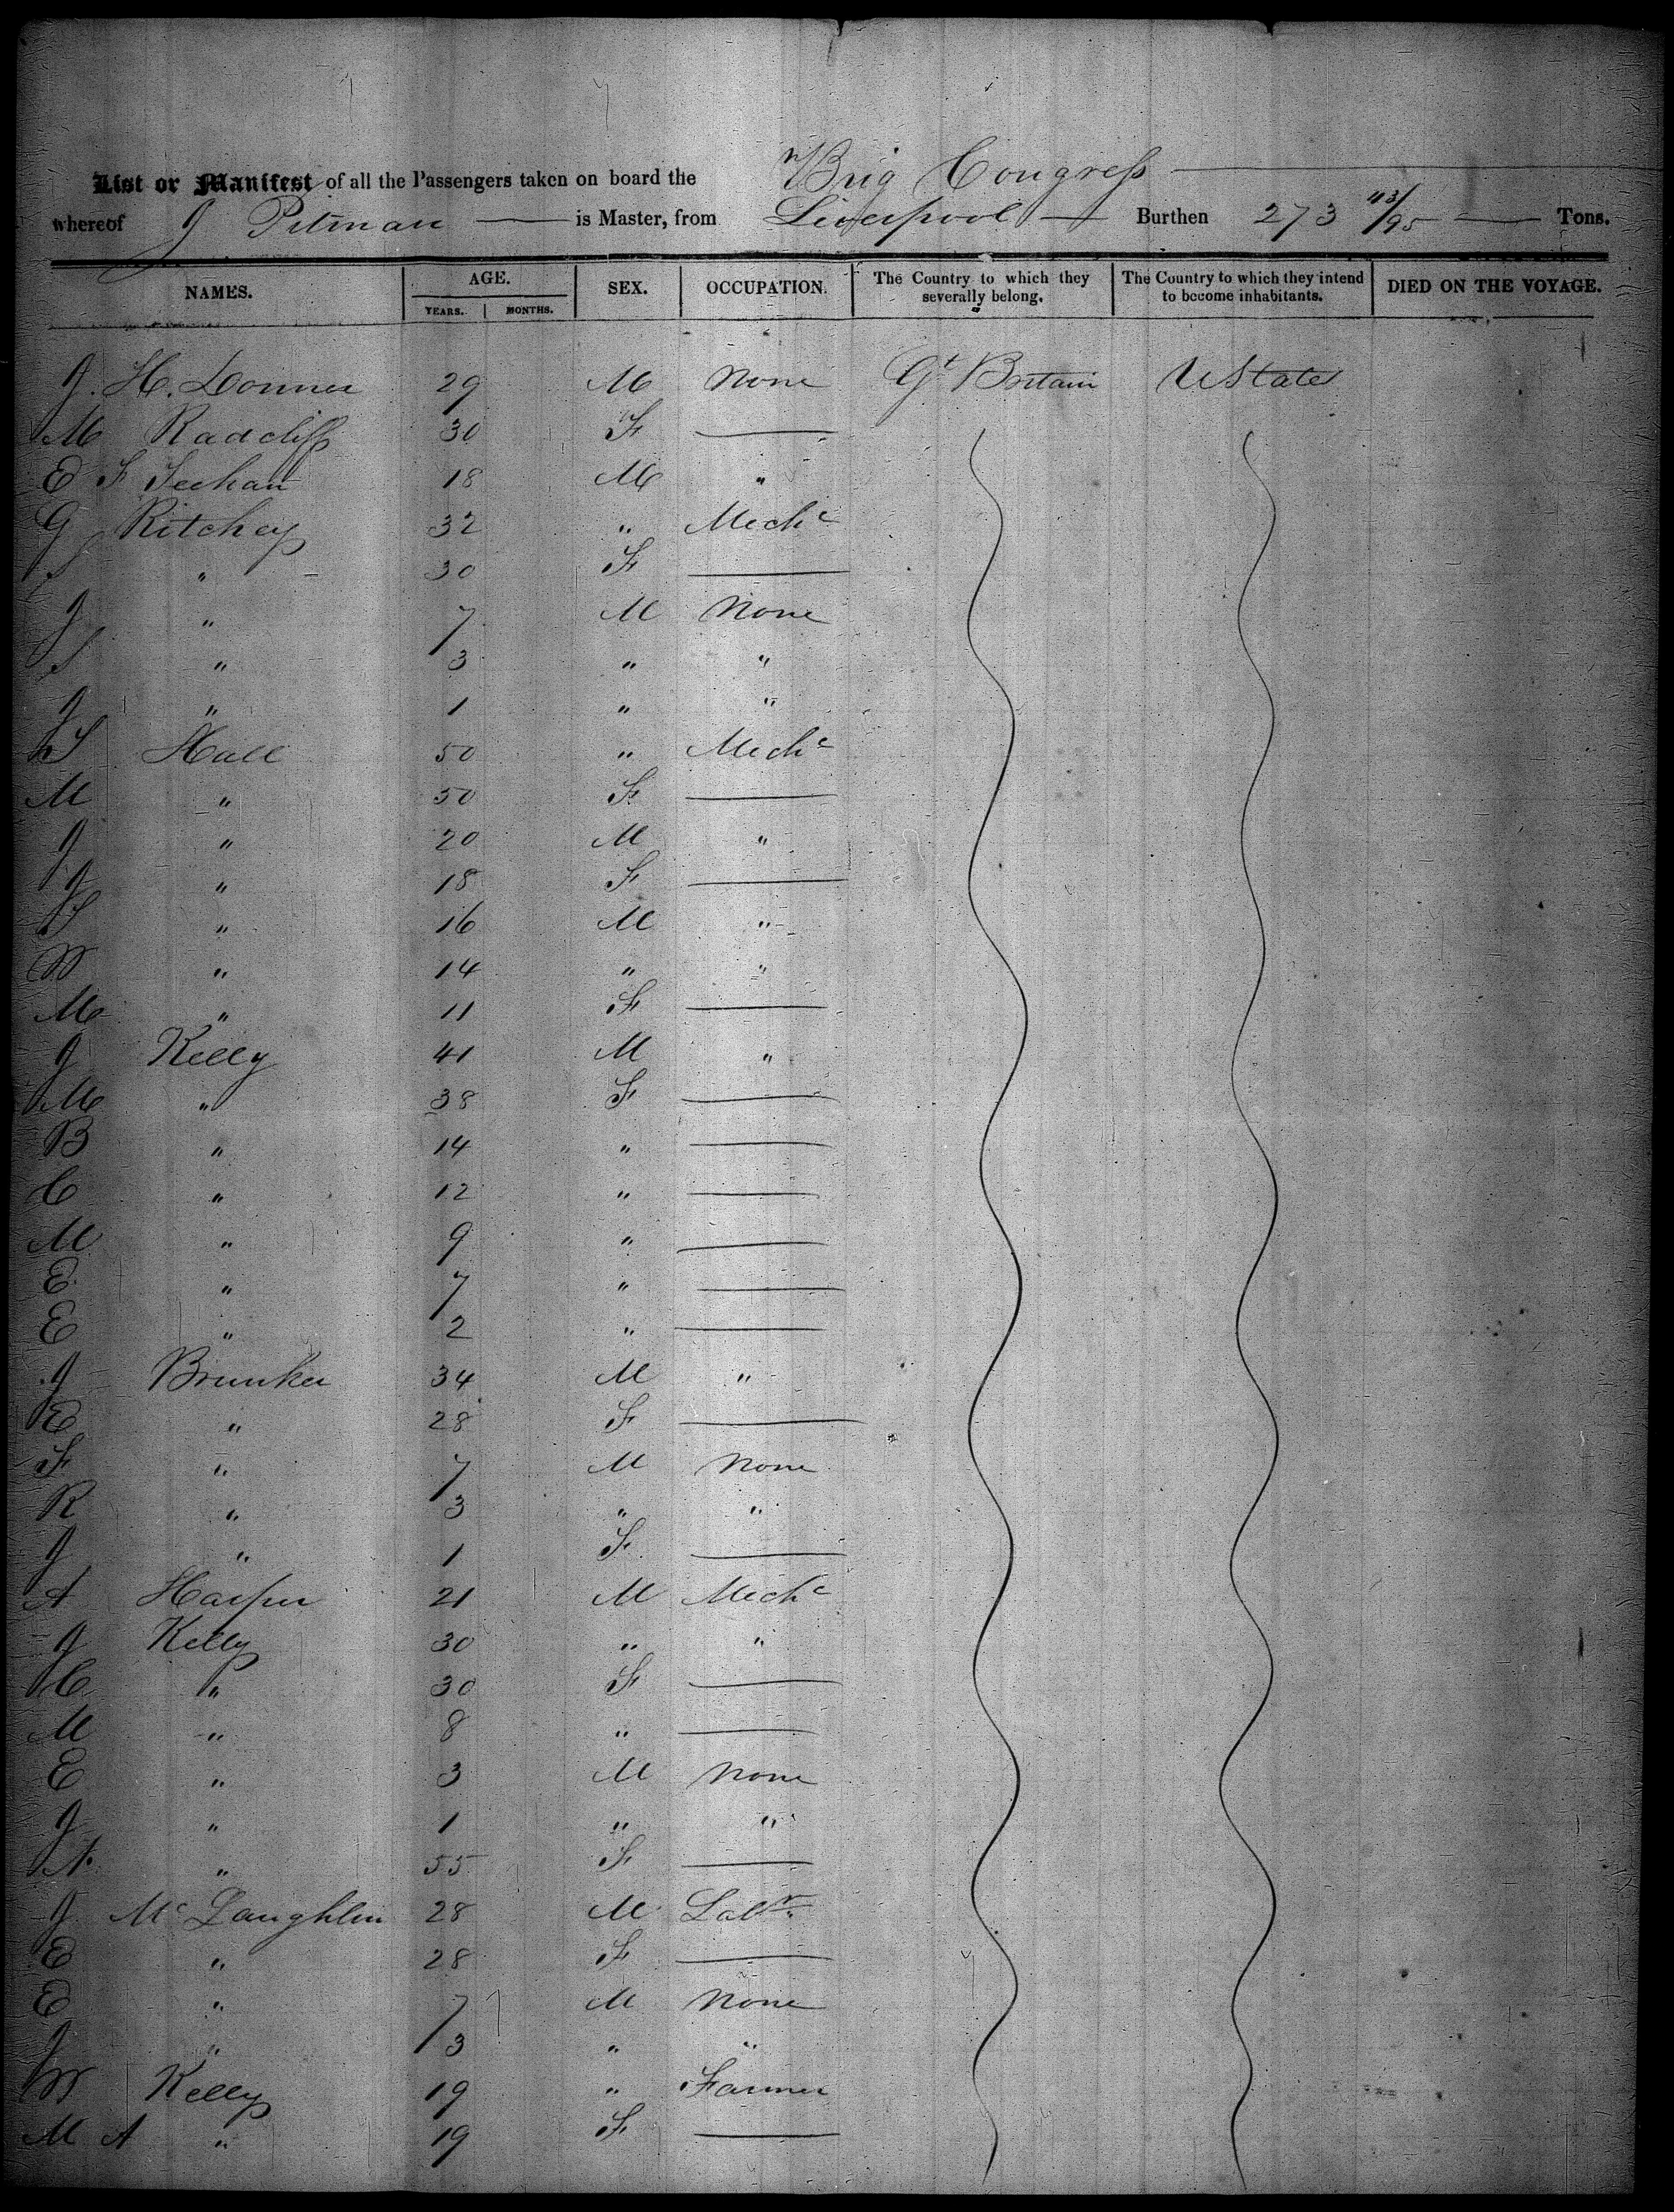 List or Manifest of all the Passengers taken on board the Brig Congress
whereof J Pitman is Master, from Liverpool Burthen 273 43/95 Tons.
NAMES. AGE. SEX. OCCUPATION. The Country to which they severally belong. The Country to which they intend to become inhabitants. DIED ON THE VOYAGE.
YEARS. MONTHS.
J. H. Donner 29 M None Gt Britain UStates
M Radcliff 30 F —
E F 18 M "
G Ritchey 32 " Mechc
S " 30 F —
J " 7 M None
S " 3 " "
J " 1 " "
S Hall 50 " Mechc
M " 50 F —
J " 20 M "
J " 18 F —
S " 16 M "
W " 14 " "
M " 11 F —
J Kelly 41 M "
M " 38 F —
B " 14 " —
C " 12 " —
M " 9 " —
E " 7 " —
E " 2 " —
J Brunker 34 M "
E " 28 F —
F " 7 M None
R " 3 " "
J " 1 F —
A Harper 21 M Mechc
J Kelly 30 " "
C " 30 F —
M " 8 " —
E " 3 M None
J " 1 " "
A " 55 F —
J McLaughlin 28 M Labr
E " 28 F —
E " 7 M None
J " 3 " "
W Kelly 19 " Farmer
M A " 19 F —